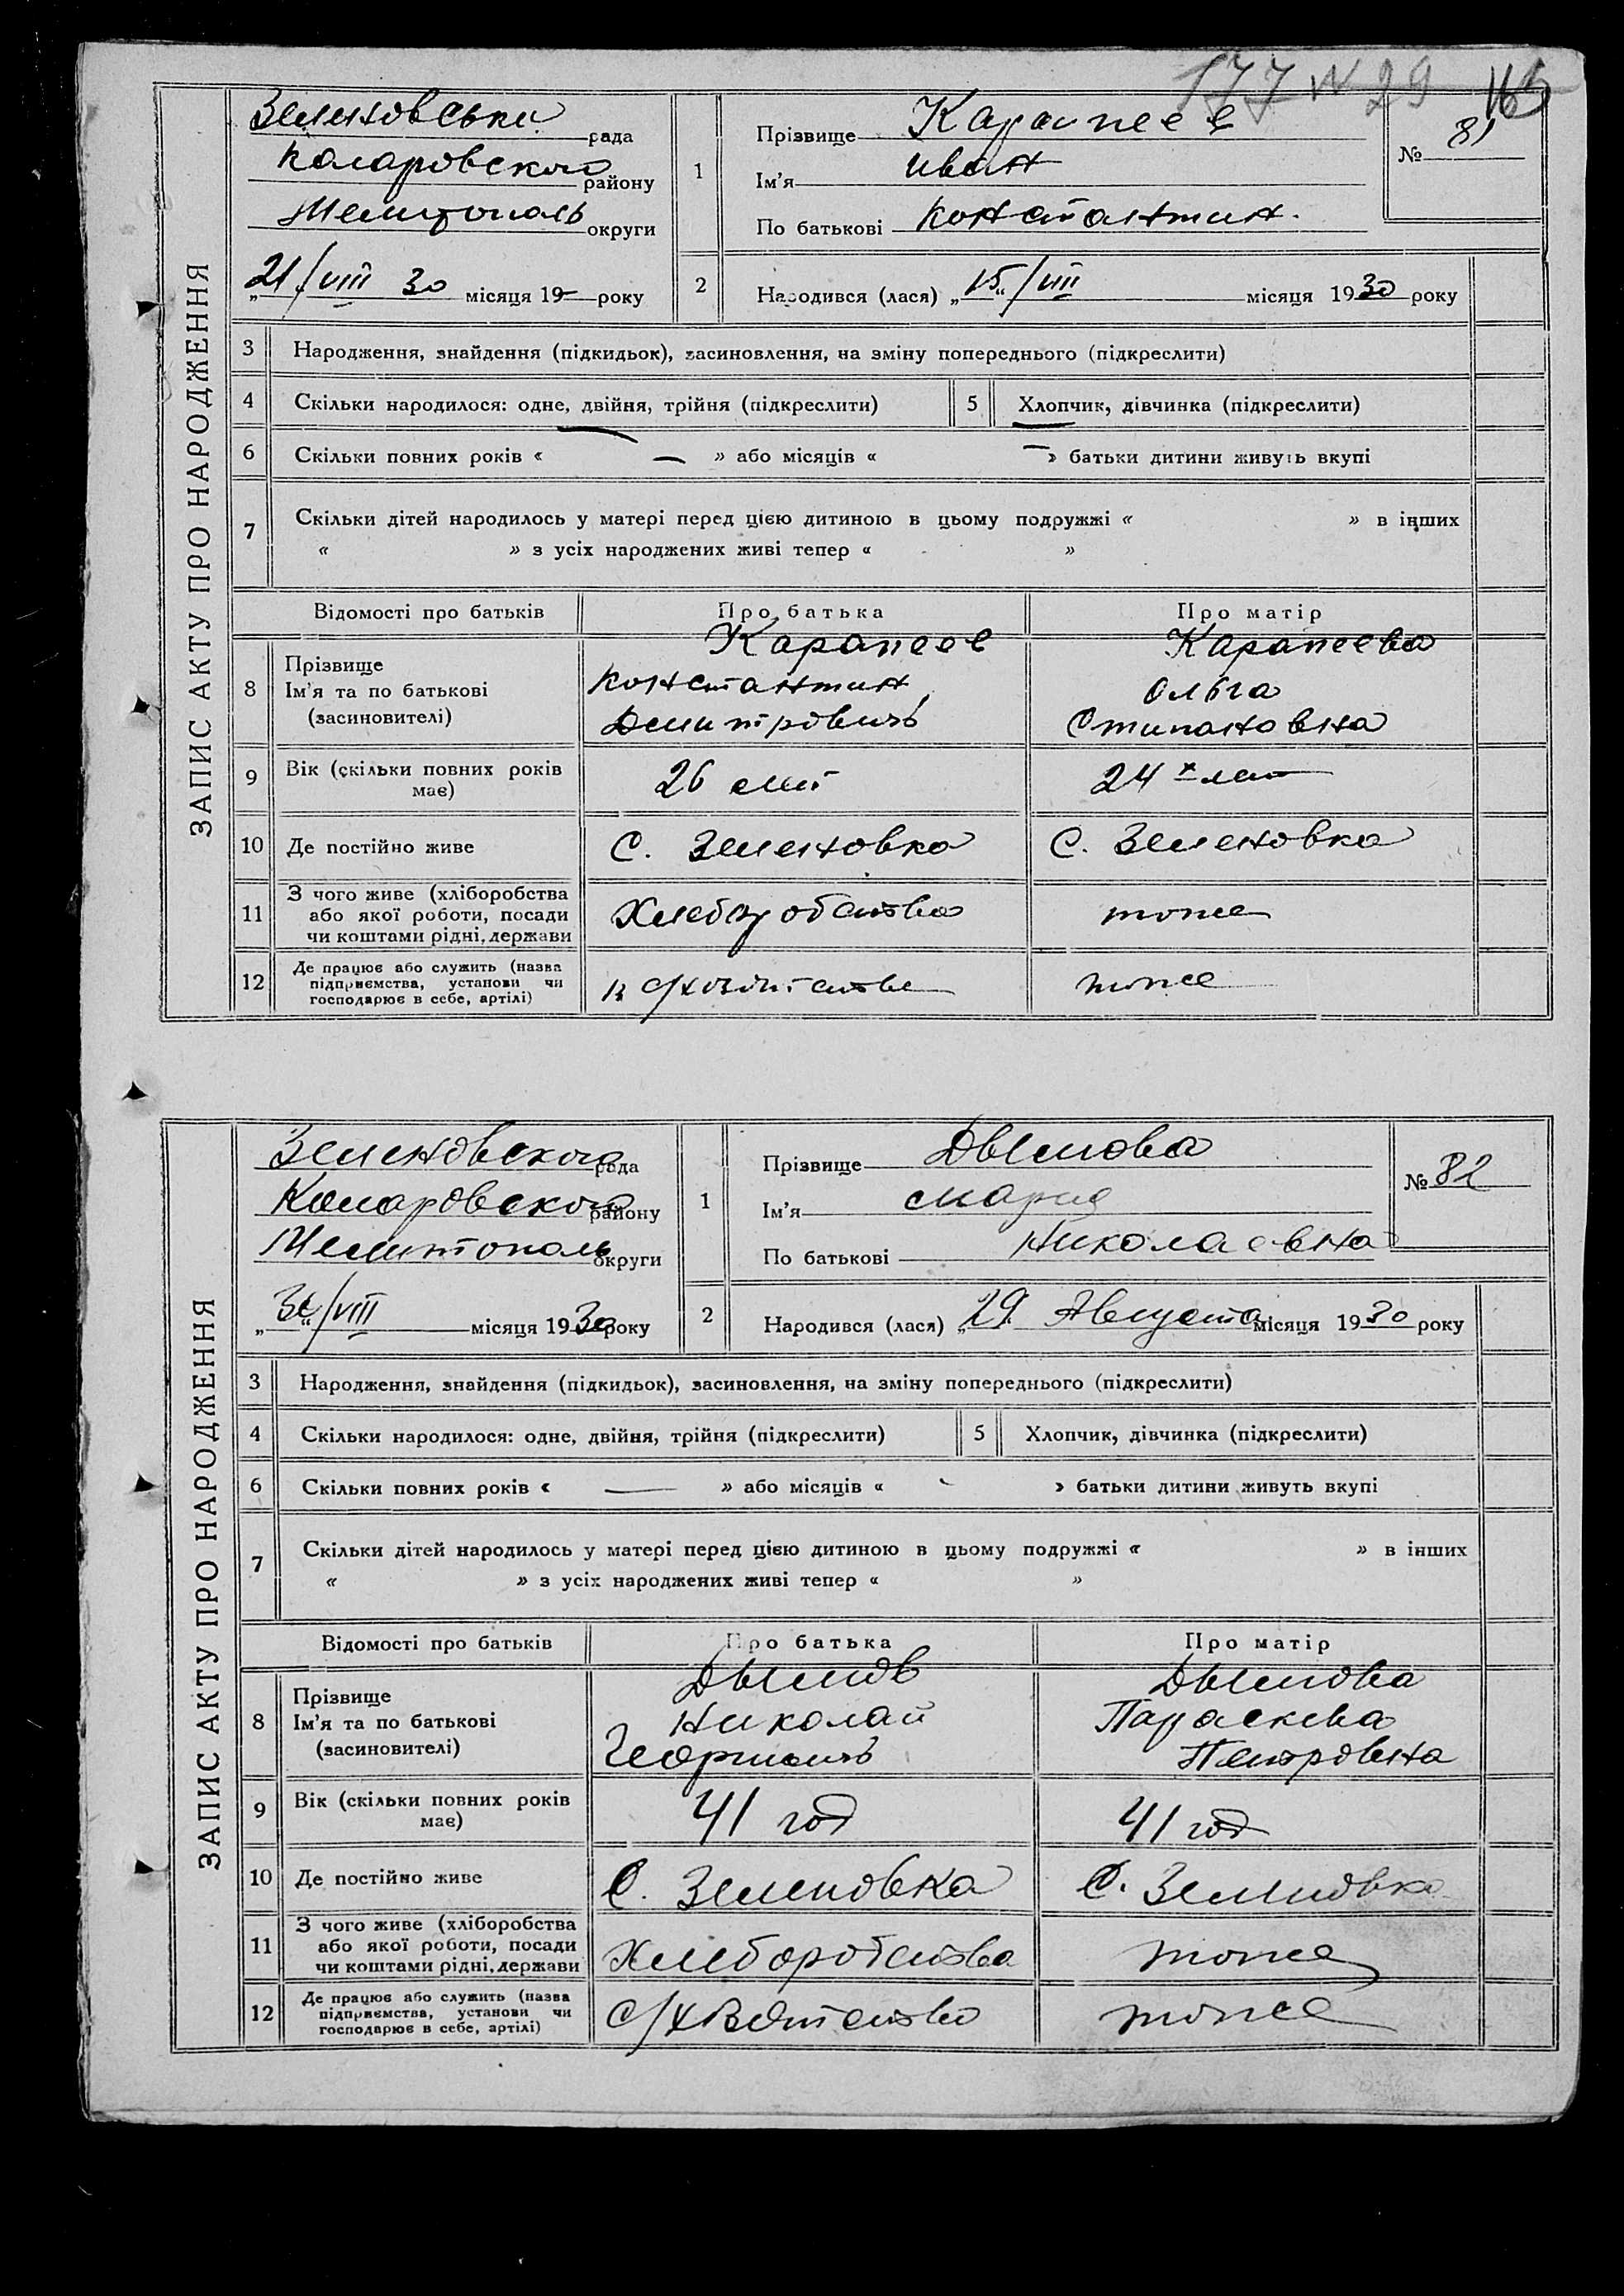 177 N 29 165
ЗАПИС АКТУ ПРО НАРОДЖЕННЯ
Зеленовськи рада
Коларовского району
Мелитополь округи
„21/VIII 30 місяця 19— року
1
Прізвище Карапеев
Ім'я Иван
По батькові Константин.
№ 81
2
Народився (лася) „15“/VIII місяця 1930 року
3 Народження, знайдення (підкидьок), засиновлення, на зміну попереднього (підкреслити)
4 Скільки народилося: одне, двійня, трійня (підкреслити) 5 Хлопчик, дівчинка (підкреслити)
6 Скільки повних років « — » або місяців « — » батьки дитини живуть вкупі
7 Скільки дітей народилось у матері перед цією дитиною в цьому подружжі « » в інших
« » з усіх народжених живі тепер « »
Відомості про батьків Про батька Про матір
8 Прізвище Карапеев Карапеева
Ім'я та по батькові Константин Ольга
(засиновителі) Дмитровичь Стипановна
9 Вік (скільки повних років має) 26 лет 24 х лет
10 Де постійно живе С. Зеленовка С. Зеленовка
11 З чого живе (хліборобства
або якої роботи, посади Хлеборобства тоже
чи коштами рідні, держави
12 Де працює або служить (назва
підприємства, установи чи В с/хозяйстве тоже
господарює в себе, артілі)
ЗАПИС АКТУ ПРО НАРОДЖЕННЯ
Зеленовского рада
Коларовского району
Мелитополь округи
„30“/VIII місяця 1930 року
1
Прізвище Дымова
Ім'я Мария
По батькові Николаевна
№ 82
2
Народився (лася) „29 Августа місяця 1930 року
3 Народження, знайдення (підкидьок), засиновлення, на зміну попереднього (підкреслити)
4 Скільки народилося: одне, двійня, трійня (підкреслити) 5 Хлопчик, дівчинка (підкреслити)
6 Скільки повних років « — » або місяців « » батьки дитини живуть вкупі
7 Скільки дітей народилось у матері перед цією дитиною в цьому подружжі « » в інших
« » з усіх народжених живі тепер « »
Відомості про батьків Про батька Про матір
8 Прізвище Дымов Дымова
Ім'я та по батькові Николай Параскева
(засиновителі) Георгиевичь Петровна
9 Вік (скільки повних років має) 41 год 41 год
10 Де постійно живе С. Зеленовка С. Зеленовка
11 З чого живе (хліборобства
або якої роботи, посади Хлеборобства тоже
чи коштами рідні, держави
12 Де працює або служить (назва
підприємства, установи чи тоже
господарює в себе, артілі)